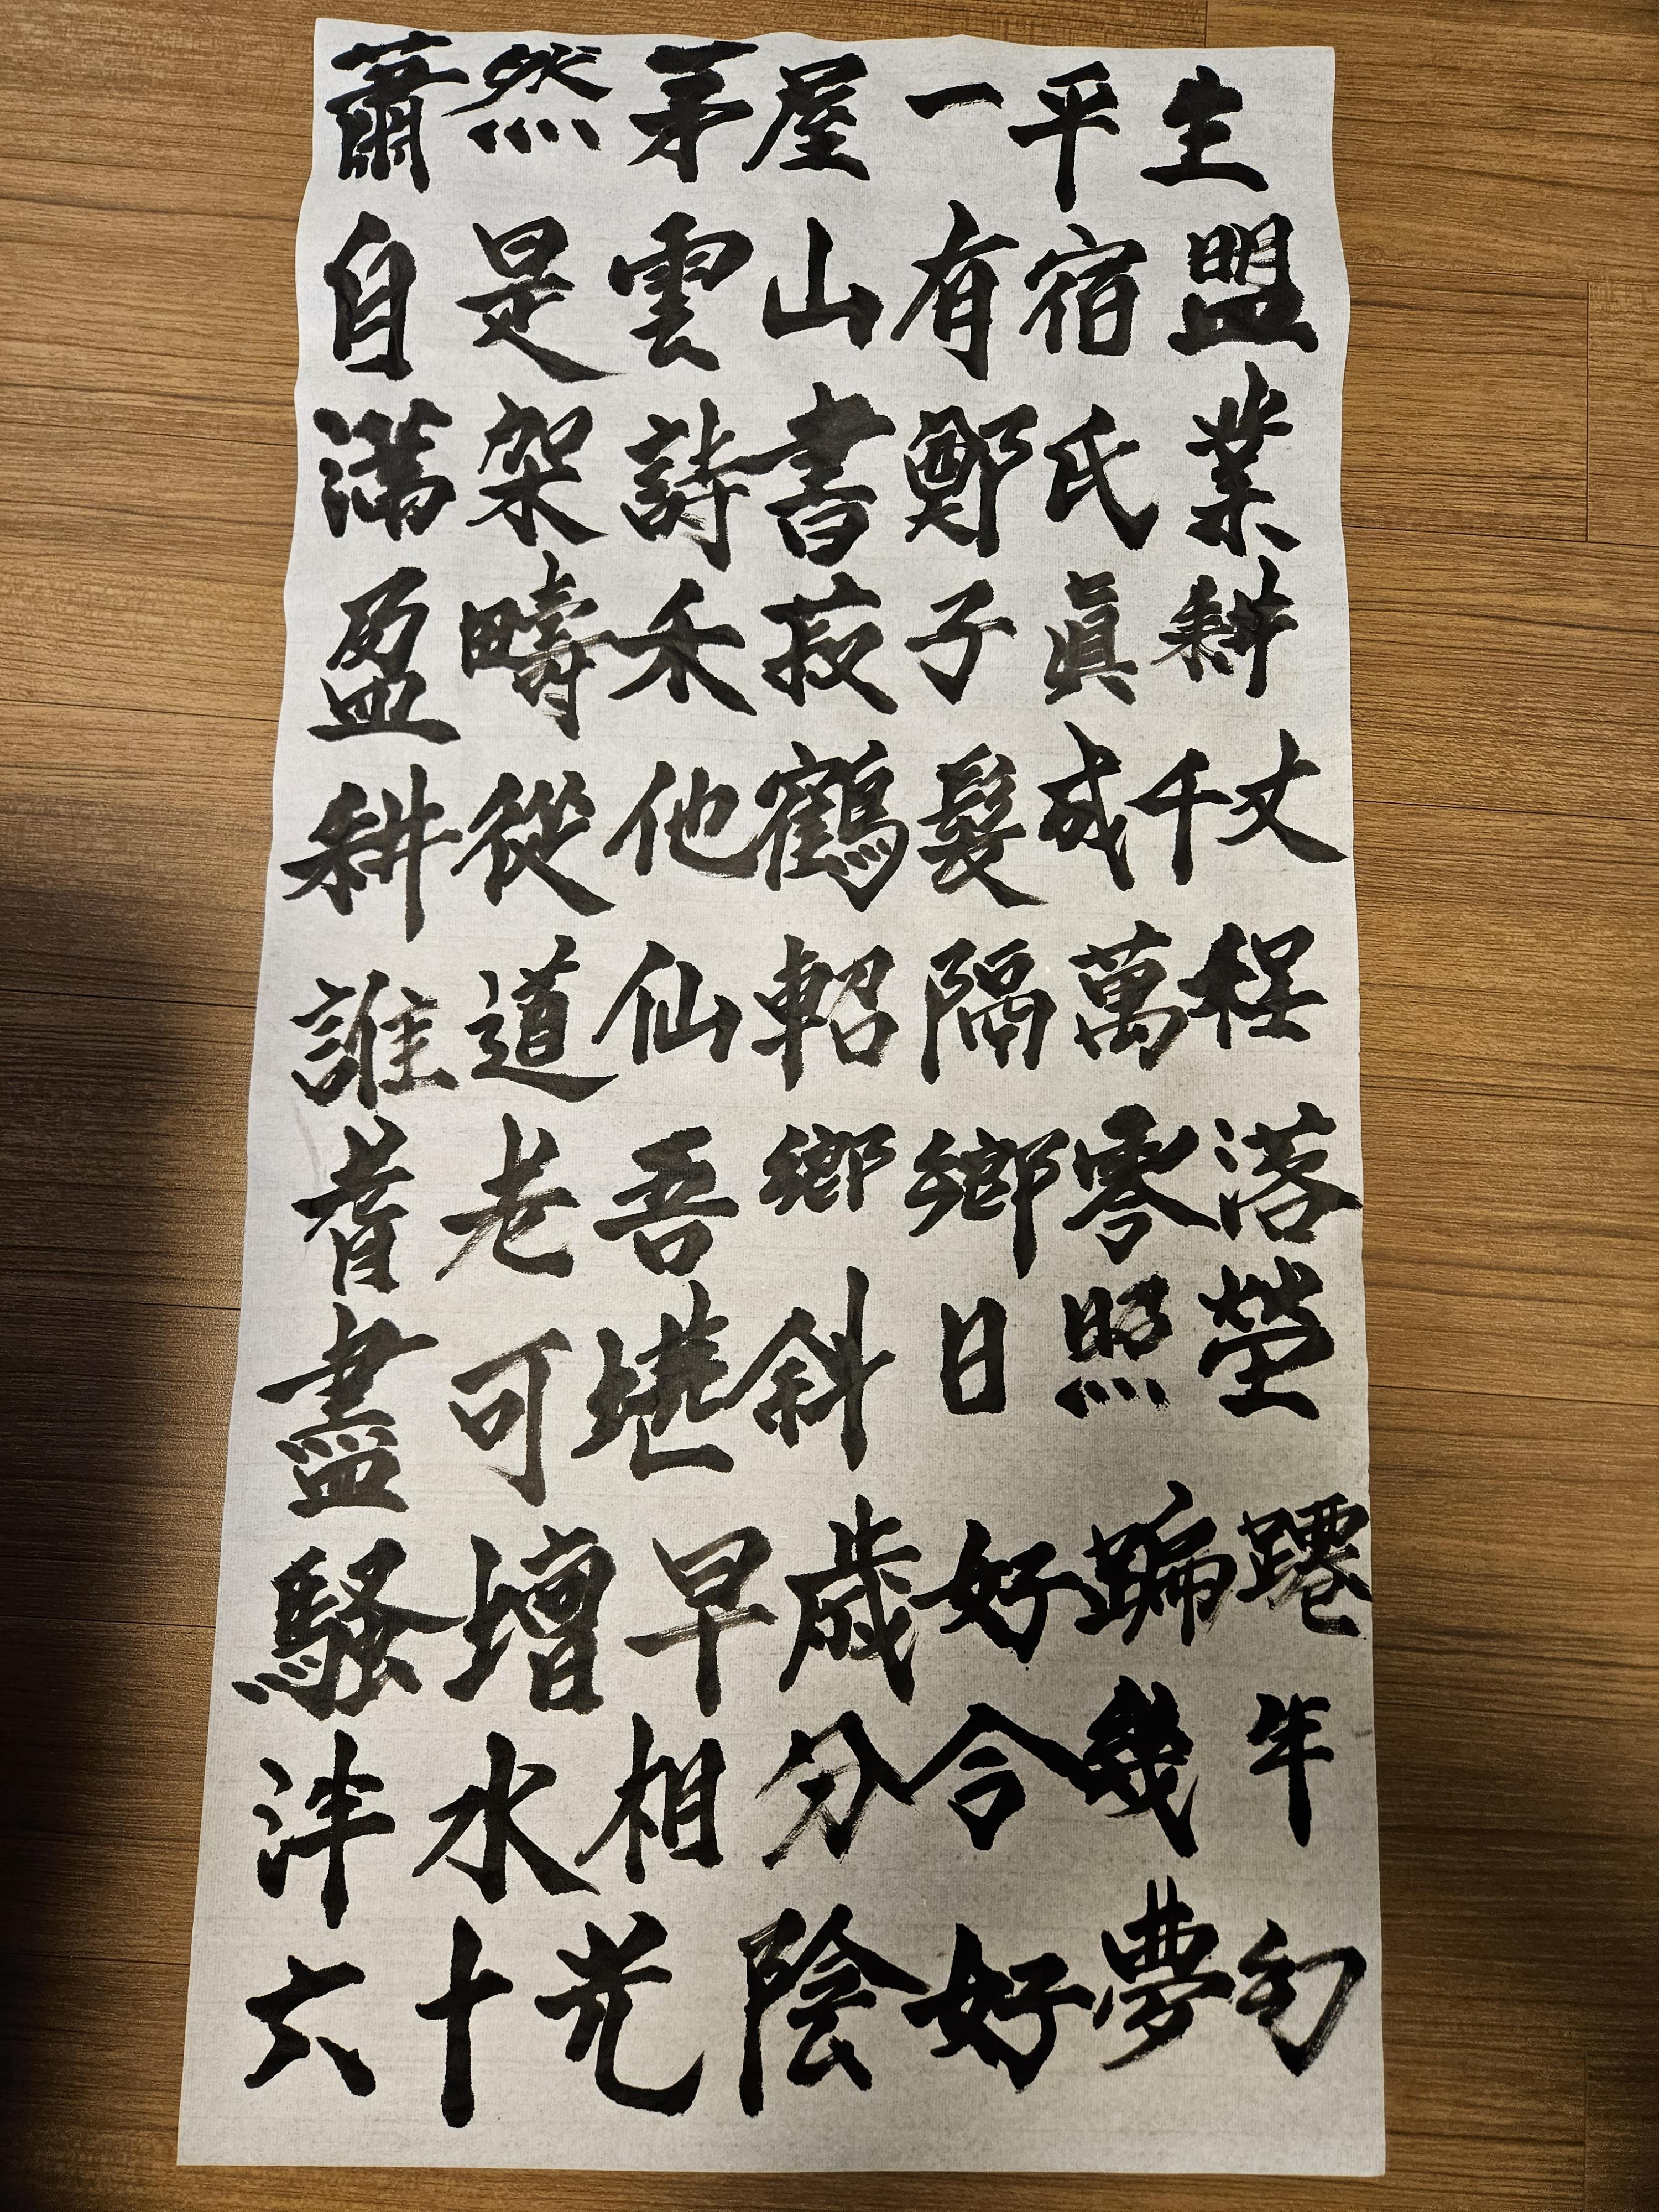 蕭然茅屋一平生
自是雲山有宿盟
滿架詩書鄭氏業
盈疇禾菽子眞耕
耕從他鶴髮成千丈
誰道仙軺隔萬程
耆老吾鄉鄉零落
盡可堪斜日照塋
騷壇早歲好蹁躚
泮水相分合幾年
六十光陰好夢勾